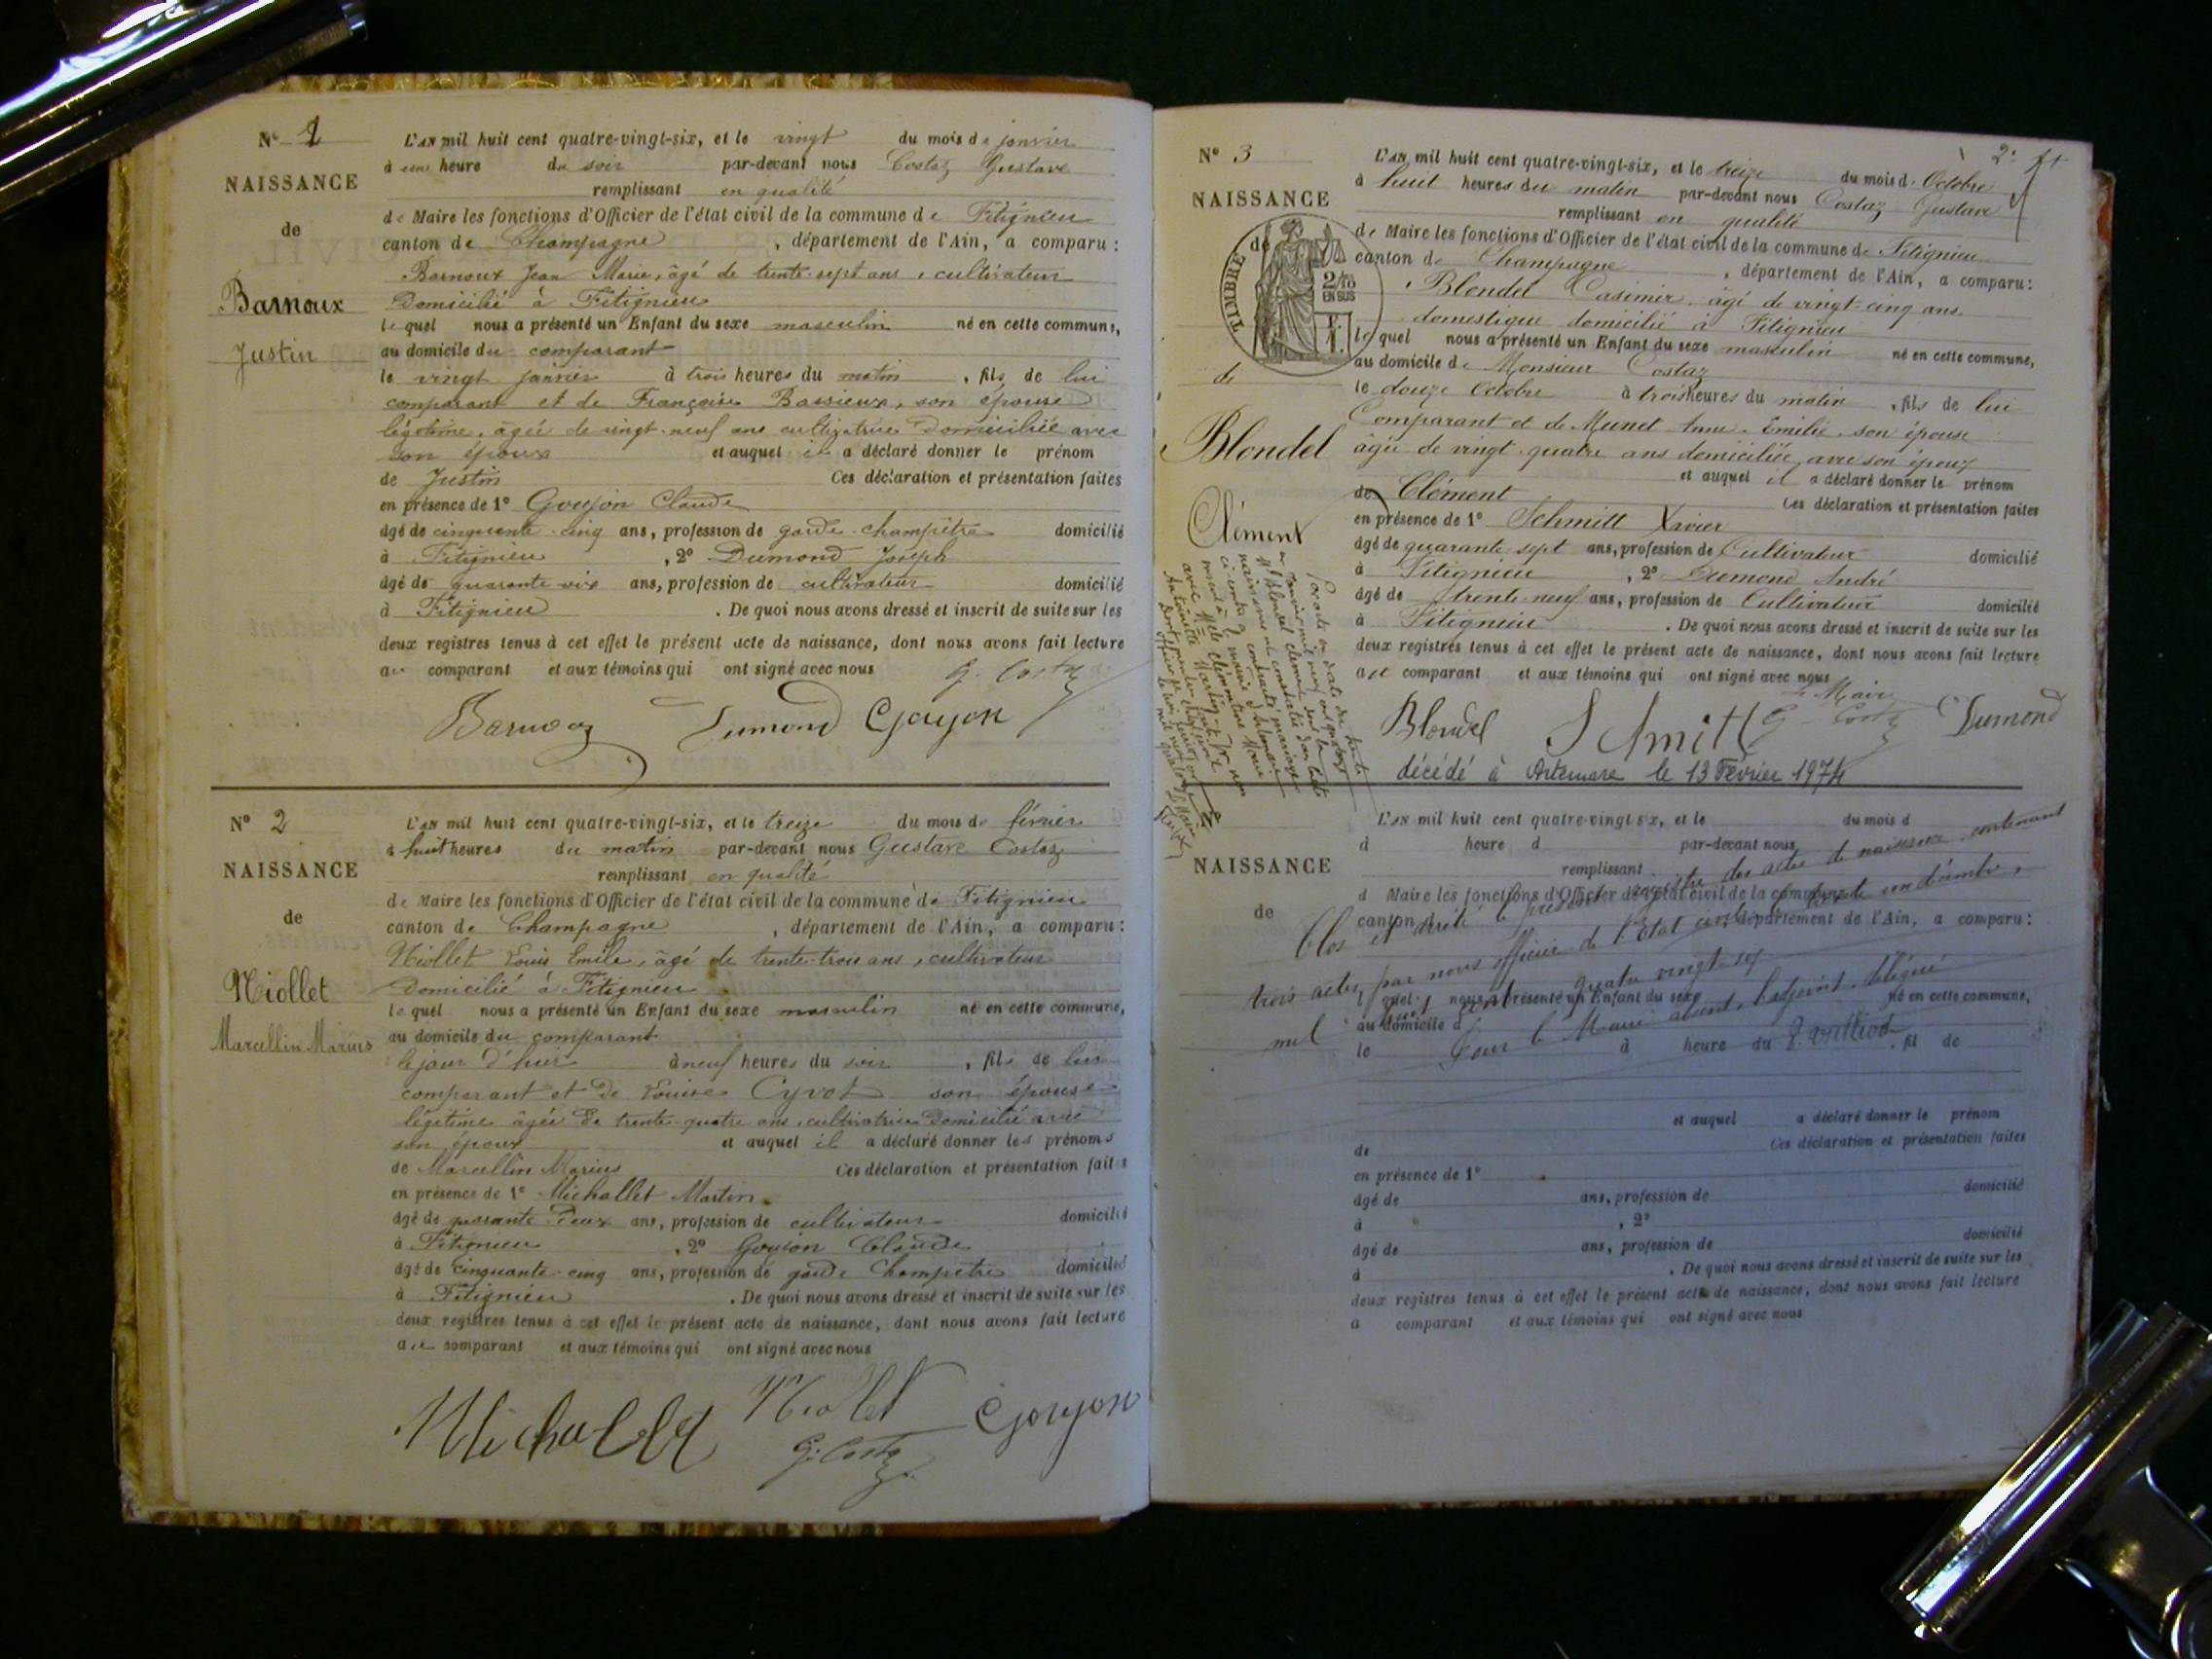 N° 1
NAISSANCE
de
Barnoux
Justin
L'AN mil huit cent quatre-vingt-six, et le vingt du mois de janvier
à une heure du soir par-devant nous Costaz Gustave
remplissant en qualité
de Maire les fonctions d'Officier de l'état civil de la commune de Fitignieu
canton de Champagne, département de l'Ain, a comparu :
Barnoux Jean Marie, âgé de trente-sept ans, cultivateur
Domicilié à Fitignieu
lequel nous a présenté un Enfant du sexe masculin né en cette commune,
au domicile du comparant
le vingt janvier à trois heures du matin, fils de lui
comparant et de Françoise Bassieux, son épouse
légitime, âgée de vingt-neuf ans cultivatrice Domiciliée avec
son époux et auquel il a déclaré donner le prénom
de Justin Ces déclaration et présentation faites
en présence de 1° Goujon Claude
âgé de cinquante-cinq ans, profession de garde-champêtre domicilié
à Fitignieu, 2° Dumond Joseph
âgé de quarante six ans, profession de cultivateur domicilié
à Fitignieu. De quoi nous avons dressé et inscrit de suite sur les
deux registres tenus à cet effet le présent acte de naissance, dont nous avons fait lecture
au comparant et aux témoins qui ont signé avec nous
G. Costaz
Barnoux Dumond Goujon
N° 2
NAISSANCE
de
Niollet
Marcellin Marius
L'AN mil huit cent quatre-vingt-six, et le treize du mois de février
à huit heures du matin par-devant nous Gustave Costaz
remplissant en qualité
de Maire les fonctions d'Officier de l'état civil de la commune de Fitignieu
canton de Champagne, département de l'Ain, a comparu :
Niollet Louis Emile, âgé de trente-trois ans, cultivateur
Domicilié à Fitignieu
lequel nous a présenté un Enfant du sexe masculin né en cette commune,
au domicile du comparant
le jour d'hier à neuf heures du soir, fils de lui
comparant et de Louise Cyvot son épouse
légitime âgée de trente-quatre ans, cultivatrice Domiciliée avec
son époux et auquel il a déclaré donner les prénoms
de Marcellin Marius Ces déclaration et présentation faites
en présence de 1° Michallet Martin
âgé de quarante-deux ans, profession de cultivateur domicilié
à Fitignieu, 2° Goujon Claude
âgé de cinquante-cinq ans, profession de garde Champêtre domicilié
à Fitignieu. De quoi nous avons dressé et inscrit de suite sur les
deux registres tenus à cet effet le présent acte de naissance, dont nous avons fait lecture
au comparant et aux témoins qui ont signé avec nous
Michallet Niollet Goujon
G. Costaz
N° 3
NAISSANCE
TIMBRE de
2/10 EN SUS
de
Blondel
Clément
L'AN mil huit cent quatre-vingt-six, et le treize du mois d'Octobre
à huit heures du matin par-devant nous Costaz Gustave
remplissant en qualité
de Maire les fonctions d'Officier de l'état civil de la commune de Fitignieu
canton de Champagne, département de l'Ain, a comparu:
Blondel Casimir, âgé de vingt-cinq ans
domestique domicilié à Fitignieu
lequel nous a présenté un Enfant du sexe masculin né en cette commune,
au domicile de Monsieur Costaz
le douze Octobre à trois heures du matin, fils de lui
Comparant et de Munet Anne Emilie son épouse
âgée de vingt-quatre ans domiciliée avec son époux
et auquel il a déclaré donner le prénom
de Clément Ces déclaration et présentation faites
en présence de 1° Schmitt Xavier
âgé de quarante sept ans, profession de Cultivateur domicilié
à Fitignieu, 2° Dumond André
âgé de trente-neuf ans, profession de Cultivateur domicilié
à Fitignieu. De quoi nous avons dressé et inscrit de suite sur les
deux registres tenus à cet effet le présent acte de naissance, dont nous avons fait lecture
au comparant et aux témoins qui ont signé avec nous
Le Maire
Blondel Schmitt G. Costaz Dumond
décédé à Artemare le 13 Février 1974
NAISSANCE
de
L'AN mil huit cent quatre-vingt-six, et le du mois d
à heure d par-devant nous
remplissant
d Maire les fonctions d'Officier de l'état civil de la commune de
canton d, département de l'Ain, a comparu:
Clos et arrêté le présent registre des actes de naissance contenant
trois actes, par nous officier de l'Etat civil, le trente un décembre,
mil huit cent quatre vingt-six
Pour le Maire absent, l'adjoint délégué
l quel nous a présenté un Enfant du sexe né en cette commune,
au domicile d
le à heure du, fil de
et auquel a déclaré donner le prénom
de Ces déclaration et présentation faites
en présence de 1°
âgé de ans, profession de domicilié
à, 2°
âgé de ans, profession de domicilié
à. De quoi nous avons dressé et inscrit de suite sur les
deux registres tenus à cet effet le présent acte de naissance, dont nous avons fait lecture
a comparant et aux témoins qui ont signé avec nous